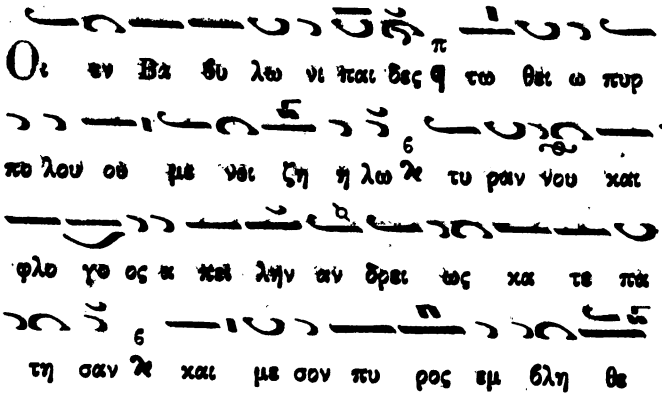 Οι εν Βα βυ λω νι παι δες π ᾳ τω θει ω πυρ
πο λου ού με νοι ζη ή λω λ̈ τυ ραν νου και
φλο γο ος α κει λήν αν δρει ως κα τε πα
τη σαν λ̈ και με σον πυ ρος εμ βλη θε